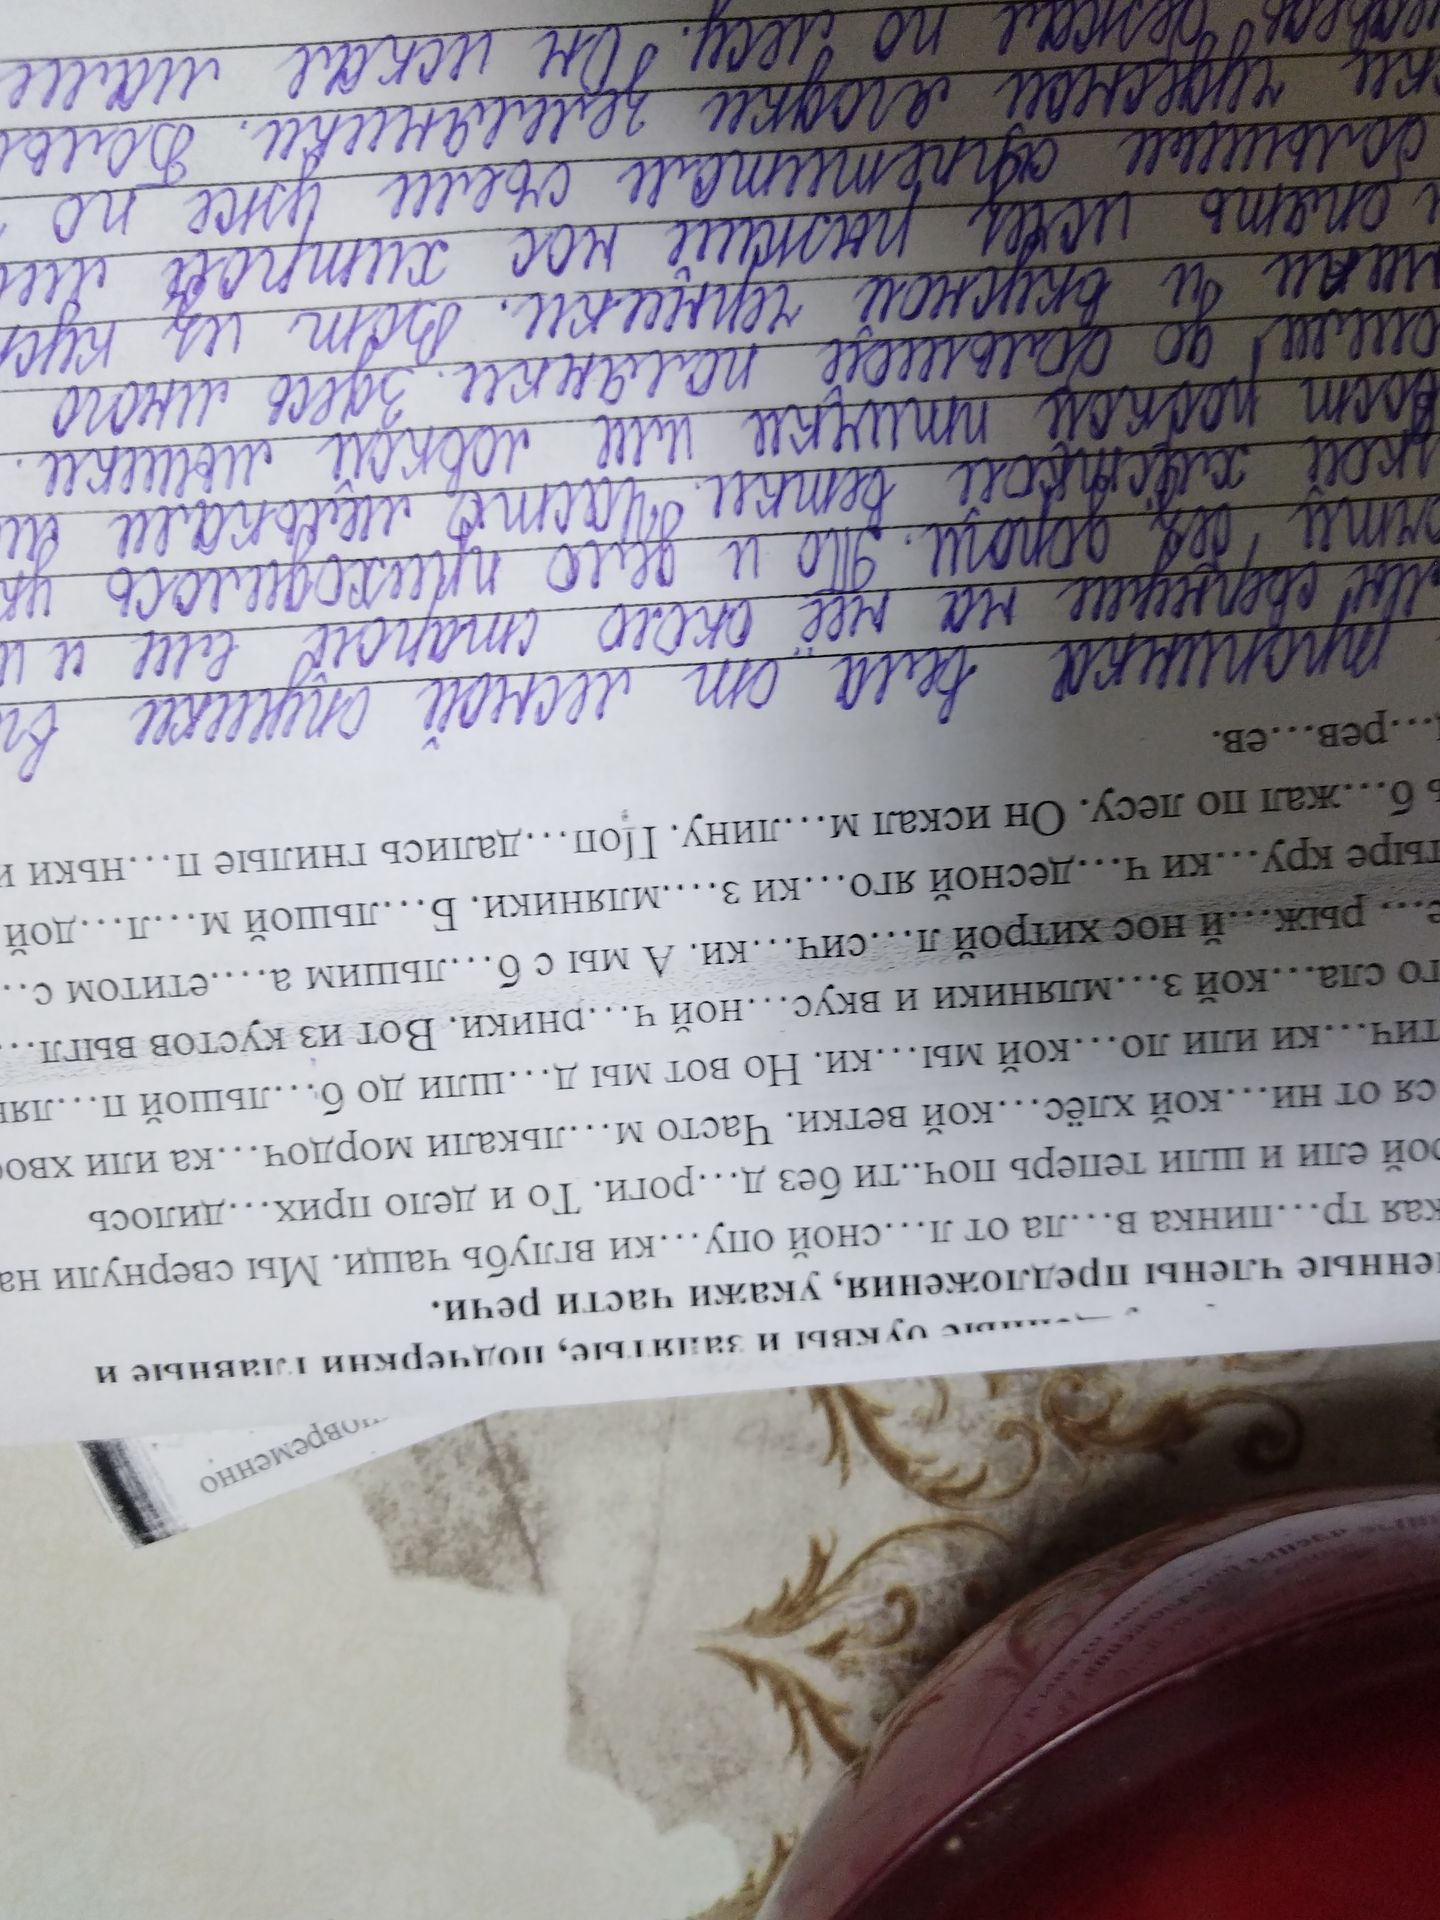 овременно
буквы и запятые, подчеркни главные и
енные члены предложения, укажи части речи.
кая тр…пинка в…ла от л…сной опу…ки вглубь чащи. Мы свернули на
рой ели и шли теперь поч..ти без д…роги. То и дело прих…дилось
ся от ни…кой хлёс…кой ветки. Часто м…лькали мордоч…ка или хвос
тич…ки или ло…кой мы…ки. Но вот мы д…шли до б…льшой п…лян
го сла…кой з…мляники и вкус…ной ч…рники. Вот из кустов выгл…
е… рыж…й нос хитрой л…сич…ки. А мы с б…льшим а….етитом с…
тыре кру…ки ч…десной яго…ки з….мляники. Б…льшой м…л…дой
ь б…жал по лесу. Он искал м…лину. Поп…дались гнилые п…ньки и
д…рев…ев.
тропинка вела от лесной опушки в
Мы свернули на неё около старой ели и ш
без дороги. То и дело приходилось ук
хлёсткой ветки. Часто мелькали
хвост робкой птички или ловкой мышки.
до большой полянки. Здесь много
и вкусной черники. Вот из куст
опять исчез рыжий нос хитрой лис
большим аппетитом съели уже по
чудесной ягодки земляники. Больш
бежал по лесу. Он искал мали